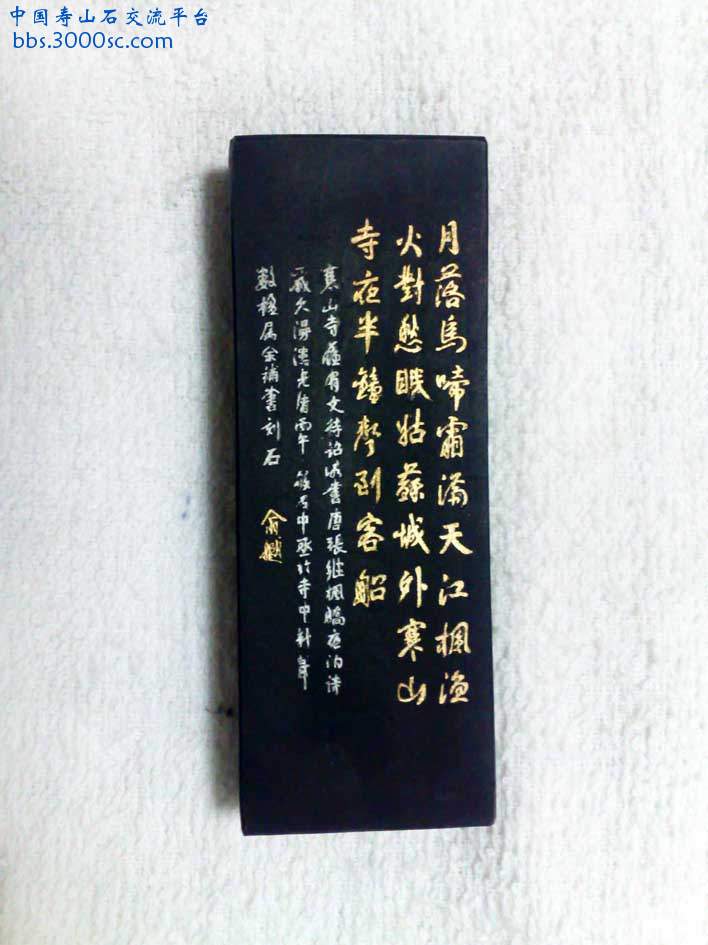 中国寿山石交流平台
bbs.3000sc.com
月落烏啼霜滿天江楓漁
火對愁眠姑蘇城外寒山
寺夜半鐘聲到客船
寒山寺舊有文待詔所書唐張繼楓橋夜泊詩
歲久漫漶光緒丙午筱石中丞於寺中新葺
數楹属余補書刻石
俞樾